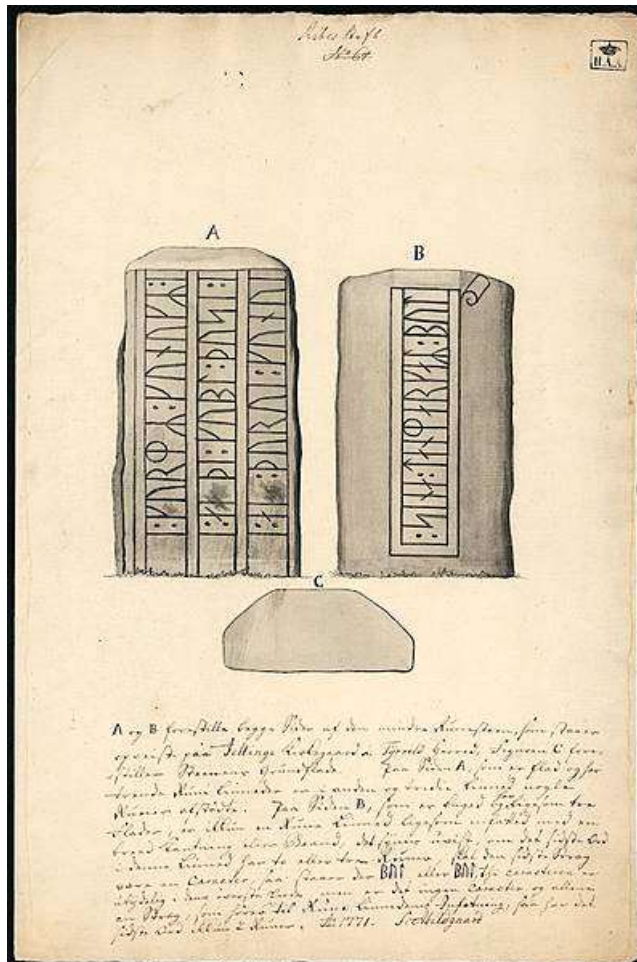 H.A.A
A
B
ᚴᚢᚱᛘᛦ᛬ᚴᚢᚾᚢᚴᛦ᛬
ᚦᛁ᛬ᚴᚢᛒᛚ᛬ᚦᚢᛋᛁ᛬
ᚦᚢᚱᚢᛁ᛬ᚴᚢᚾᚢ
᛬ᛋᛁᚾᛅ᛬ᛏᛅᚾᛘᛅᚱᚴᛅᛦ᛬ᛒᚢᛏ
C
A og B forestille begge Sider af den mindre Runesteen, som staaer
opreist paa Jellinge Kirkegaard i Tyrrild Herred, Figuren C fore-
stiller Steenens Grundflade. Paa Siden A, som er flad og har
trende Rune Linneder ere i anden og tredie Linned nogle
Runer afstødte. Paa Siden B, som er buget ligesom tre
Flader, er ikkun en Rune Linned ligesom infattet med en
breed Kantning eller Baand, det synes uvist, om det sidste Ord
i denne Linned har to eller tre Runer, skal den sidste Streg
være en Caracter, saa staaer der ᛒᚢᛁ eller ᛒᚢᛏ, thi caracteren er
utydelig i dens øverste Ende, men er det ingen caracter og allene
en Streg, som hører til Rune Linnedens Infatning, saa har det
sidste Ord ikkun 2 Runer. 1771. S: Abildgaard